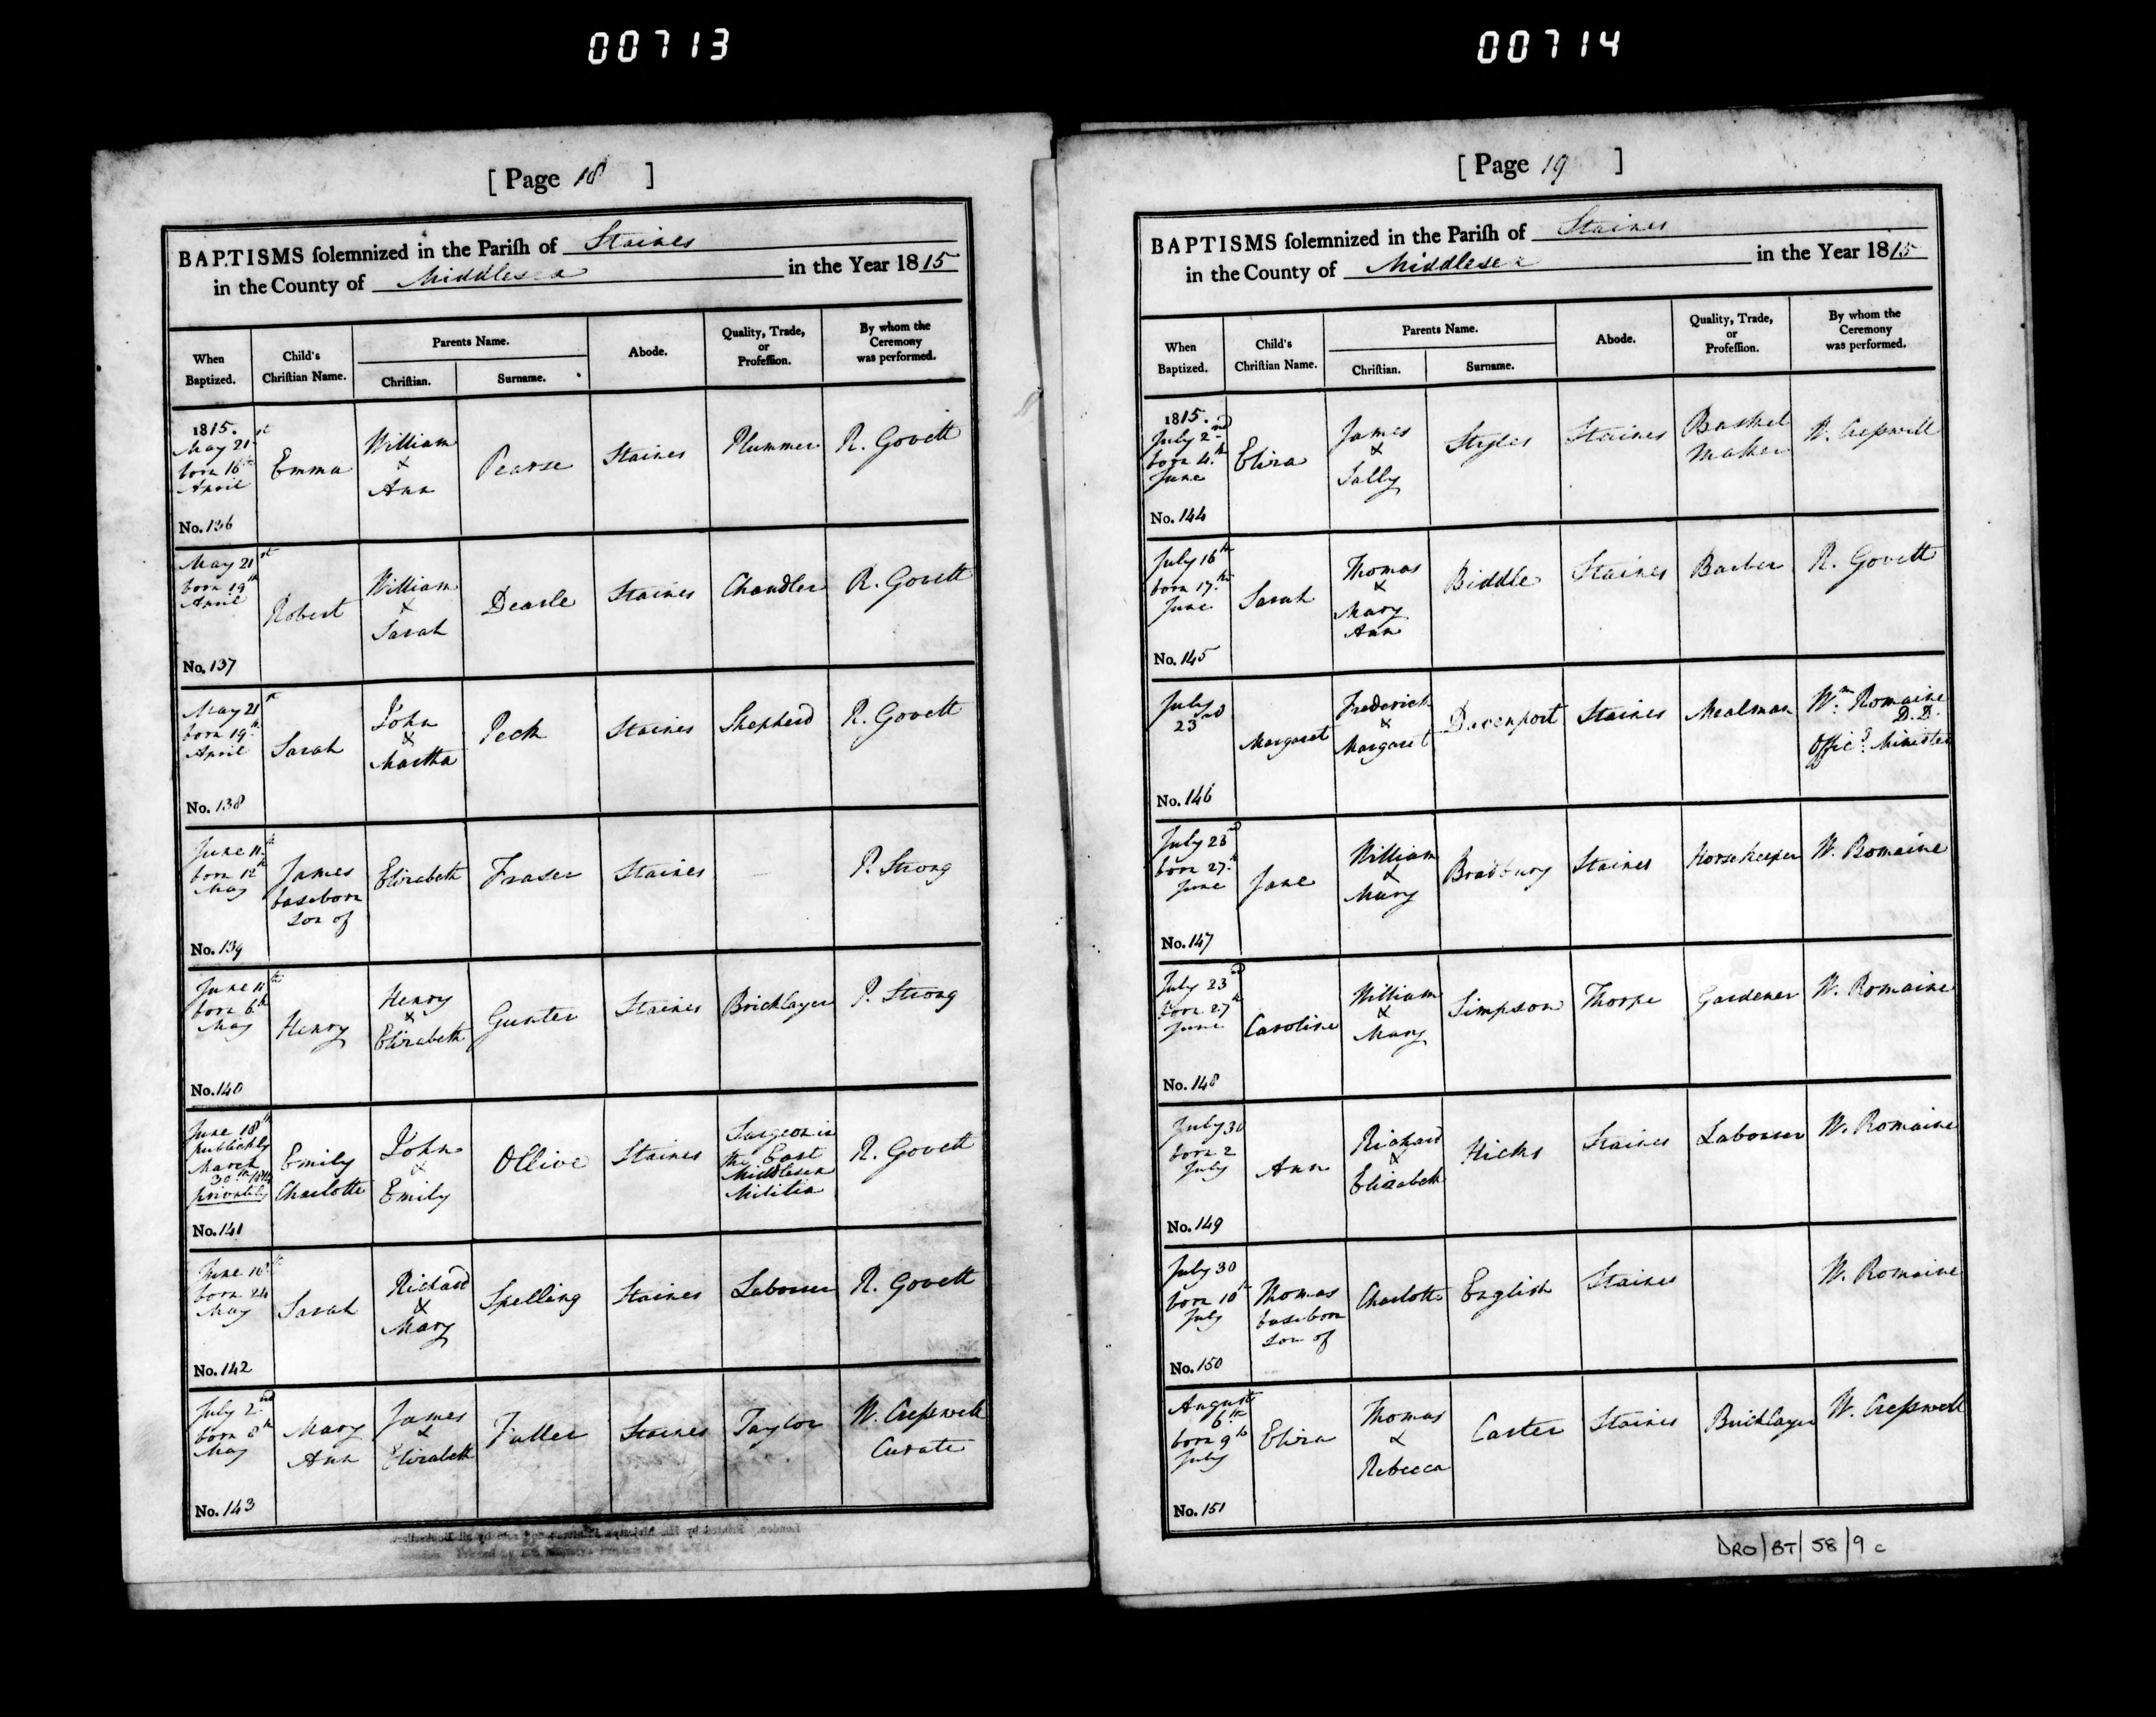 00713
00714
[ Page 18 ]
BAPTISMS solemnized in the Parish of Staines
in the County of Middlesex in the Year 1815
When Baptized.
Child's Christian Name.
Parents Name.
Christian.
Surname.
Abode.
Quality, Trade, or Profession.
By whom the Ceremony was performed.
1815.
May 21st
born 16th
April
No. 136
Emma
William
&
Ann
Pearse
Staines
Plummer
R. Govett
May 21st
born 19th
April
No. 137
Robert
William
&
Sarah
Dearle
Staines
Chandler
R. Govett
May 21st
born 19th
April
No. 138
Sarah
John
&
Martha
Peck
Staines
Shepherd
R. Govett
June 11th
born 12th
May
No. 139
James
baseborn
son of
Elizabeth
Fraser
Staines
P. Strong
June 11th
born 6th
May
No. 140
Henry
Henry
&
Elizabeth
Gunter
Staines
Bricklayer
P. Strong
June 18th
publickly
March
30th
privately
No. 141
Emily
Charlotte
John
&
Emily
Ollive
Staines
Surgeon in
the East
Middlesex
Militia
R. Govett
June
born 24
May
No. 142
Sarah
Richard
&
Mary
Spelling
Staines
Labourer
R. Govett
July 2nd
born 8th
May
No. 143
Mary
Ann
James
&
Elizabeth
Fuller
Staines
Taylor
W. Cresswell
Curate
[ Page 19 ]
BAPTISMS solemnized in the Parish of Staines
in the County of Middlesex in the Year 1815
When Baptized.
Child's Christian Name.
Parents Name.
Christian.
Surname.
Abode.
Quality, Trade, or Profession.
By whom the Ceremony was performed.
1815.
July 2nd
born 4th
June
No. 144
Eliza
James
&
Sally
Styles
Staines
Basket
Maker
W. Cresswell
July 16th
born 17th
June
No. 145
Sarah
Thomas
&
Mary
Ann
Biddle
Staines
Barber
R. Govett
July
23rd
No. 146
Margaret
Frederick
&
Margaret
Davenport
Staines
Mealman
Wm. Romaine
D.D.
Offic.g Minister
July 23rd
born 27th
June
No. 147
Jane
William
&
Mary
Bradbury
Staines
Horsekeeper
W. Romaine
July 23rd
born 27th
June
No. 148
Caroline
William
&
Mary
Simpson
Thorpe
Gardener
W. Romaine
July 30
born 2
July
No. 149
Ann
Richard
&
Elizabeth
Hicks
Staines
Labourer
W. Romaine
July 30
born 10th
July
No. 150
Thomas
baseborn
son of
Charlotte
English
Staines
W. Romaine
August
6th
born 9th
July
No. 151
Eliza
Thomas
&
Rebecca
Carter
Staines
Bricklayer
W. Cresswell
DRO/BT/58/9 c